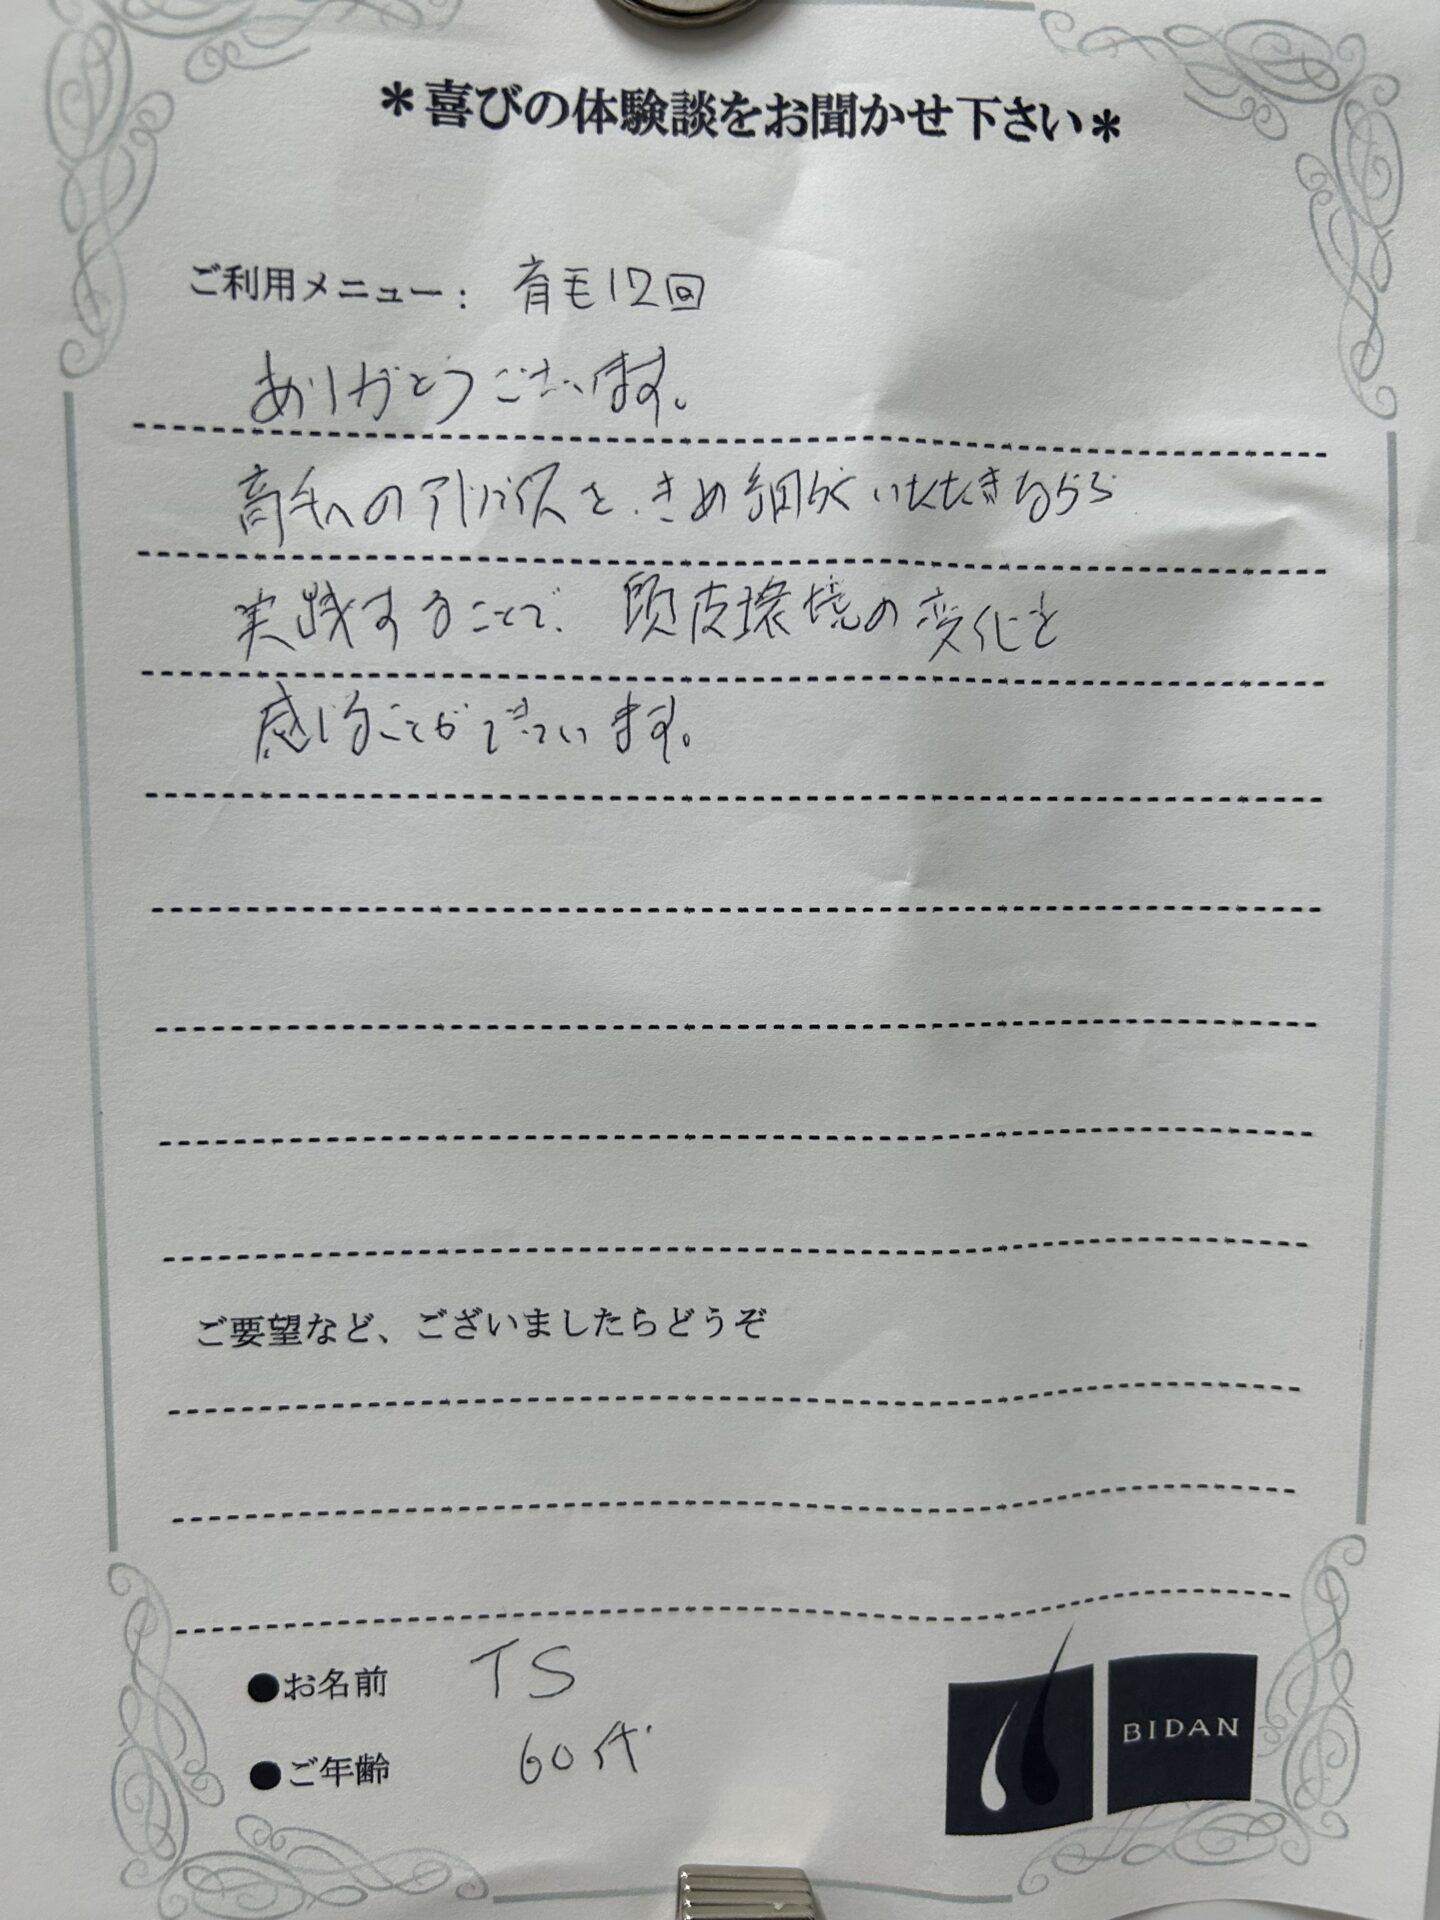 ＊喜びの体験談をお聞かせ下さい＊
ご利用メニュー： 育毛12回
ありがとうございます。
へのアドバイスを、きめ細かくいただきながら
実践することで、頭皮環境の変化を
感じることができています。
ご要望など、ございましたらどうぞ
●お名前 TS
●ご年齢 60代
BIDAN